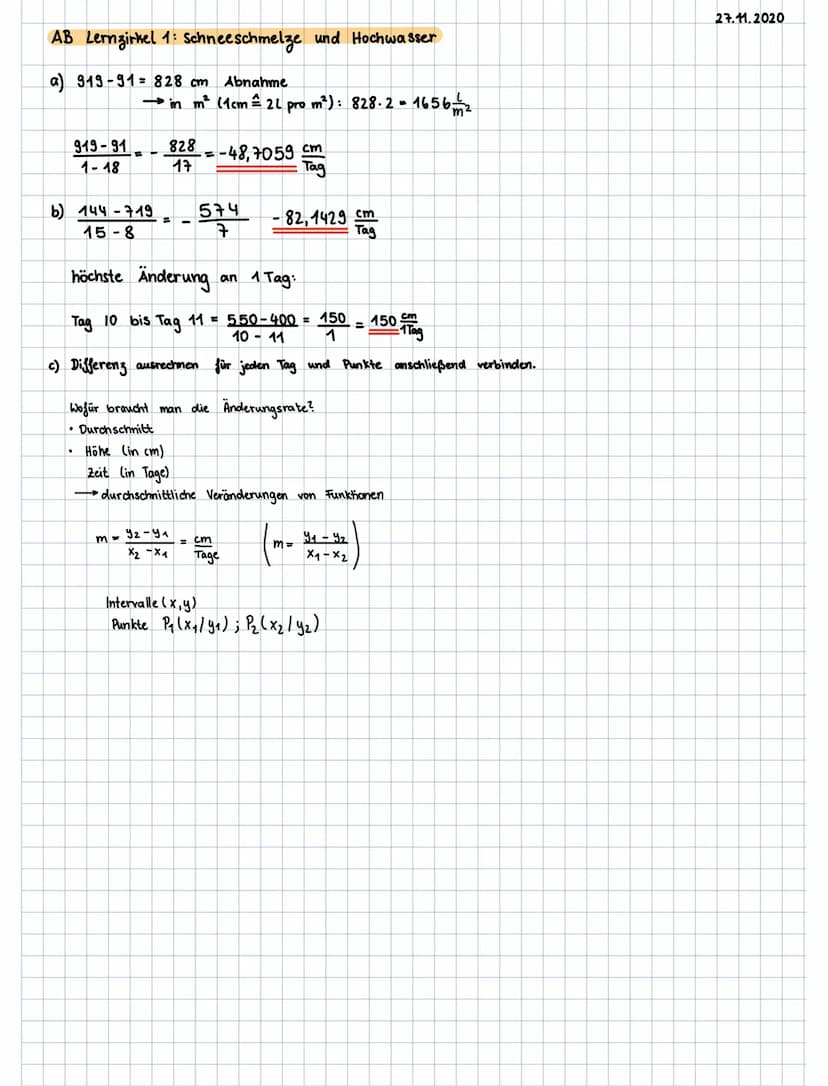 27.11.2020
AB Lernzirkel 1: Schneeschmelze und Hochwasser
a) 919-91 = 828 cm Abnahme
→ in m² (1cm ≙ 2L pro m²): 828·2 = 1656 L/m²
(919-91)/(1-18) = - 828/17 = -48,7059 cm/Tag
b) (144-719)/(15-8) = - 574/7 -82,1429 cm/Tag
höchste Änderung an 1 Tag:
Tag 10 bis Tag 11 = (550-400)/(10-11) = 150/1 = 150 cm/1Tag
c) Differenz ausrechnen für jeden Tag und Punkte anschließend verbinden.
Wofür braucht man die Änderungsrate?
• Durchschnitt
• Höhe (in cm)
Zeit (in Tage)
→ durchschnittliche Veränderungen von Funktionen
m = (y₂-y₁)/(x₂-x₁) = cm/Tage (m = (y₁-y₂)/(x₁-x₂))
Intervalle (x,y)
Punkte P₁(x₁/y₁) ; P₂(x₂/y₂)